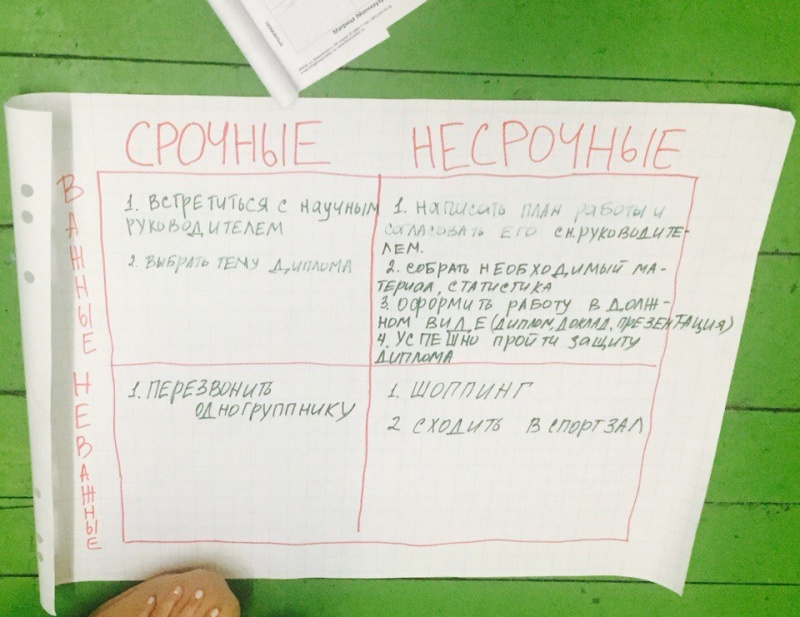 Матрица Эйзенхауэра
СРОЧНЫЕ НЕСРОЧНЫЕ
ВАЖНЫЕ
1. ВСТРЕТИТЬСЯ С НАУЧНЫМ
РУКОВОДИТЕЛЕМ
2. ВЫБРАТЬ ТЕМУ ДИПЛОМА
1. НАПИСАТЬ ПЛАН РАБОТЫ И
СОГЛАСОВАТЬ ЕГО С Н.РУКОВОДИТЕ-
ЛЕМ.
2. СОБРАТЬ НЕОБХОДИМЫЙ МА-
ТЕРИАЛ, СТАТИСТИКА
3. ОФОРМИТЬ РАБОТУ В ДОЛЖ-
НОМ ВИДЕ (ДИПЛОМ, ДОКЛАД, ПРЕЗЕНТАЦИЯ)
4. УСПЕШНО ПРОЙТИ ЗАЩИТУ
ДИПЛОМА
НЕВАЖНЫЕ
1. ПЕРЕЗВОНИТЬ
ОДНОГРУППНИКУ
1. ШОППИНГ
2 СХОДИТЬ В СПОРТЗАЛ